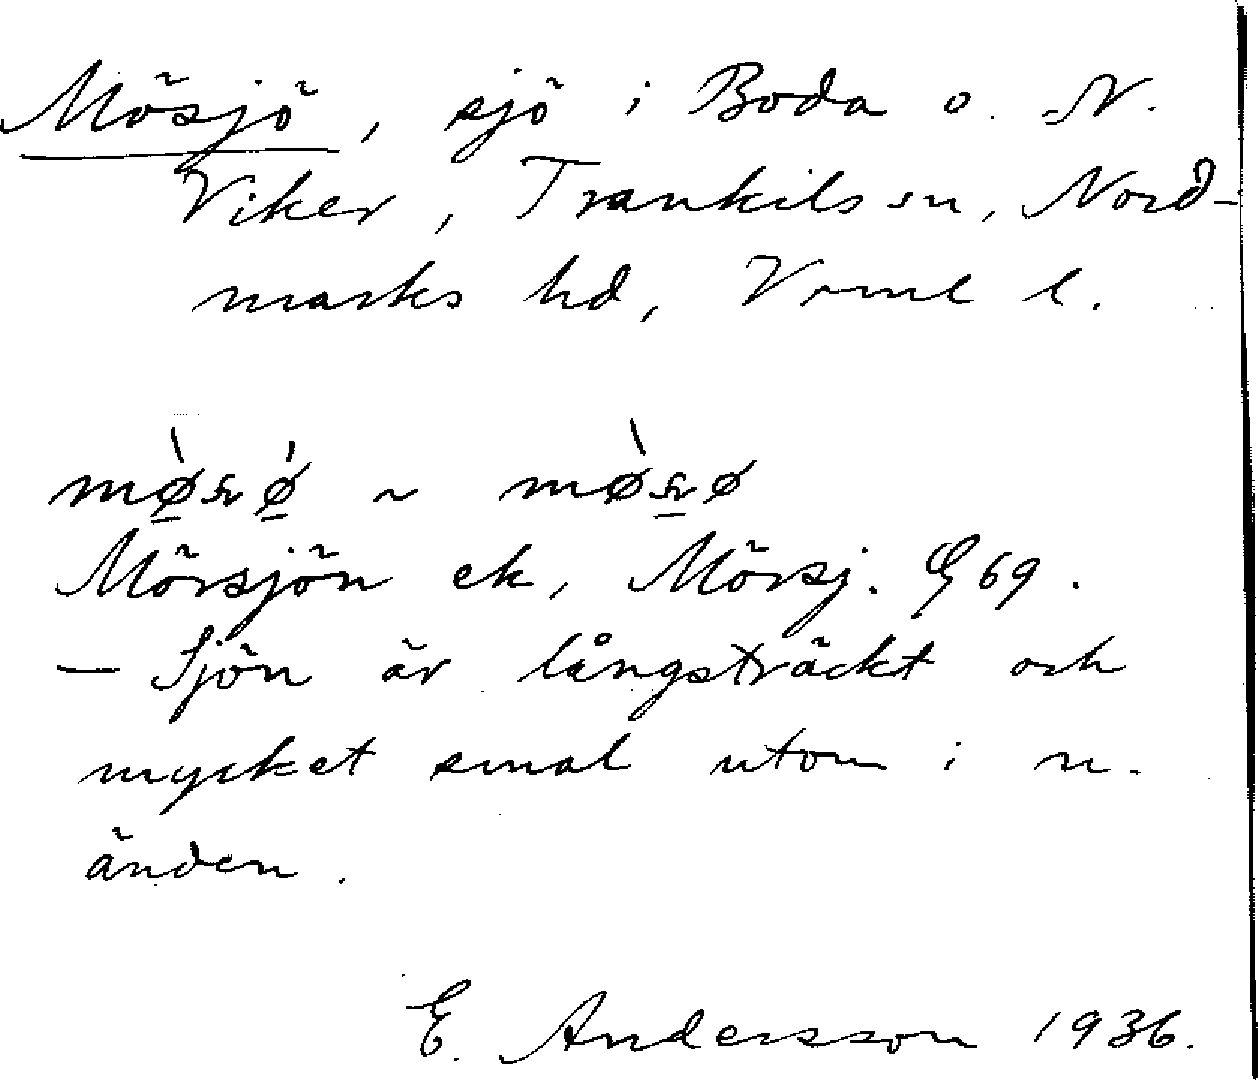 Mösjö, sjö i Boda o. N.
Viker, Trankils sn, Nord-
marks hd, Vrml l.
~
Mörsjön ek, Mörsj. G 69.
— Sjön är långsträckt och
mycket smal utom i n.
änden.
E. Andersson 1936.